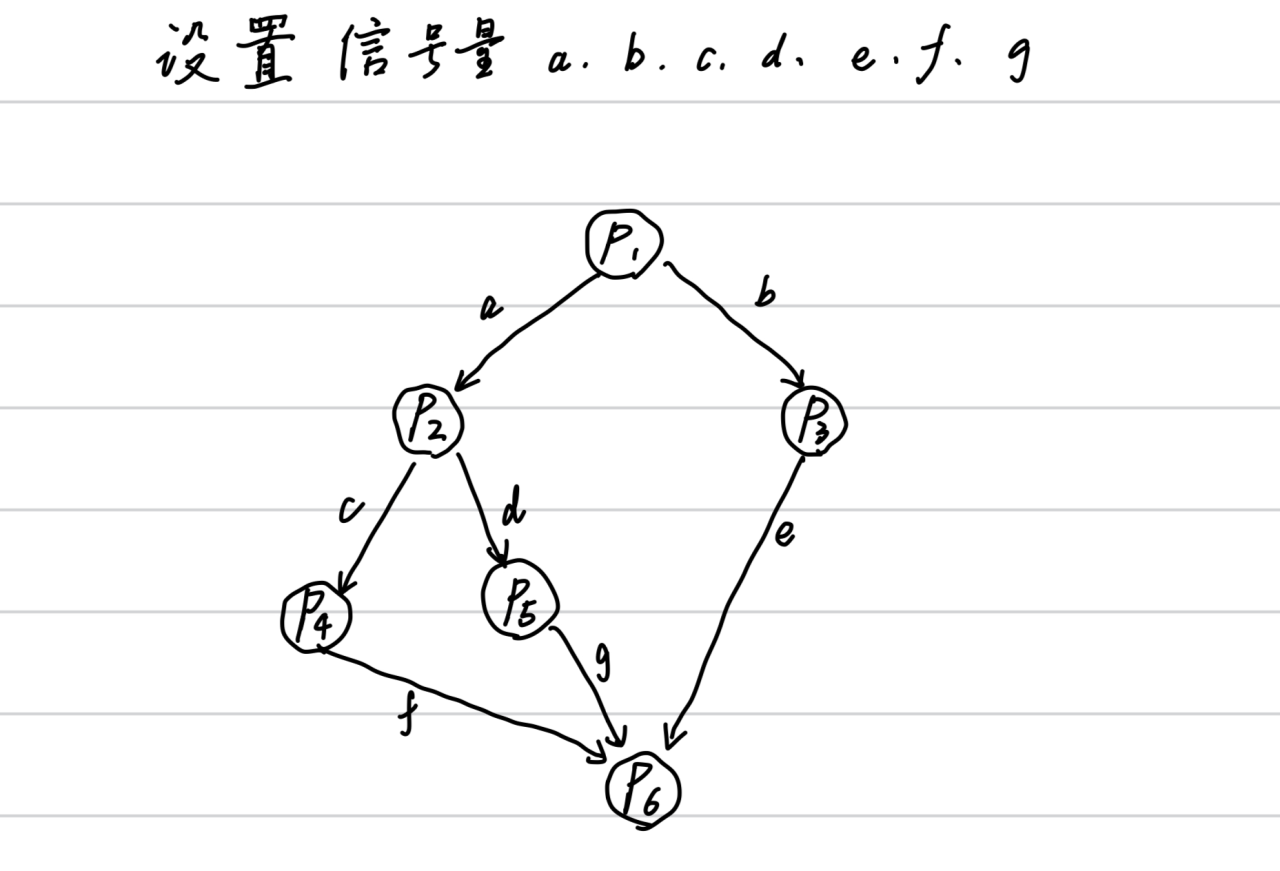 设置 信号量 a. b. c. d、 e. f、 g
P1
a
b
P2
P3
c
d
e
P4
P5
g
f
P6